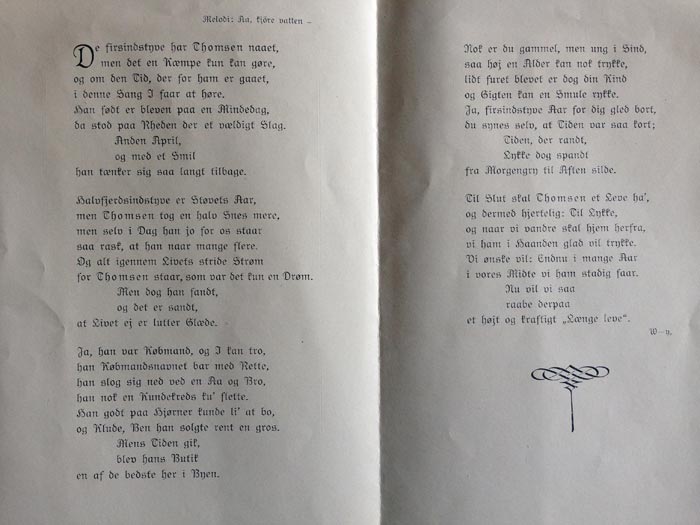 Melodi: Aa, kjöre vatten –
De firsindstyve har Thomsen naaet,
men det en Kæmpe kun kan gøre,
og om den Tid, der for ham er gaaet,
i denne Sang I faar at høre.
Han født er bleven paa en Mindedag,
da stod paa Rheden der et vældigt Slag.
Anden April,
og med et Smil
han tænker sig saa langt tilbage.
Halvfjerdsindstyve er Støvets Aar,
men Thomsen tog en halv Snes mere,
men selv i Dag han jo for os staar
saa rask, at han naar mange flere.
Og alt igennem Livets stride Strøm
for Thomsen staar, som var det kun en Drøm.
Men dog han fandt,
og det er sandt,
at Livet ej er lutter Glæde.
Ja, han var Købmand, og I kan tro,
han Købmandsnavnet bar med Rette,
han slog sig ned ved en Aa og Bro,
han nok en Kundekreds ku' flette.
Han godt paa Hjørner kunde li' at bo,
og Klude, Ben han solgte rent en gros.
Mens Tiden gik,
blev hans Butik
en af de bedste her i Byen.
Nok er du gammel, men ung i Sind,
saa høj en Alder kan nok trykke,
lidt furet blevet er dog din Kind
og Gigten kan en Smule rykke.
Ja, firsindstyve Aar for dig gled bort,
du synes selv, at Tiden var saa kort;
Tiden, der randt,
Lykke dog spandt
fra Morgengry til Aften silde.
Til Slut skal Thomsen et Leve ha',
og dermed hjertelig: Til Lykke,
og naar vi vandre skal hjem herfra,
vi ham i Haanden glad vil trykke.
Vi ønske vil: Endnu i mange Aar
i vores Midte vi ham stadig faar.
Nu vil vi saa
raabe derpaa
et højt og kraftigt „Længe leve“.
W—n.